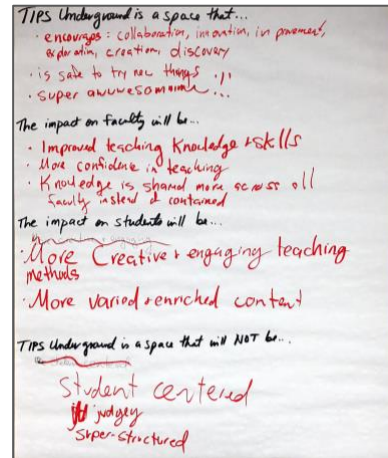 TIPS Underground is a space that...
· encourages: collaboration, innovation, improvement,
exploration, creation, discovery
· is safe to try new things
· super
The impact on faculty will be...
· Improved teaching knowledge + skills
· More confidence in teaching
· Knowledge is shared more across all
faculty instead of contained
The impact on students will be...
· More Creative + engaging teaching
methods
· More varied + enriched content
TIPS Underground is a space that will NOT be...
Student centered
judgey
super-structured